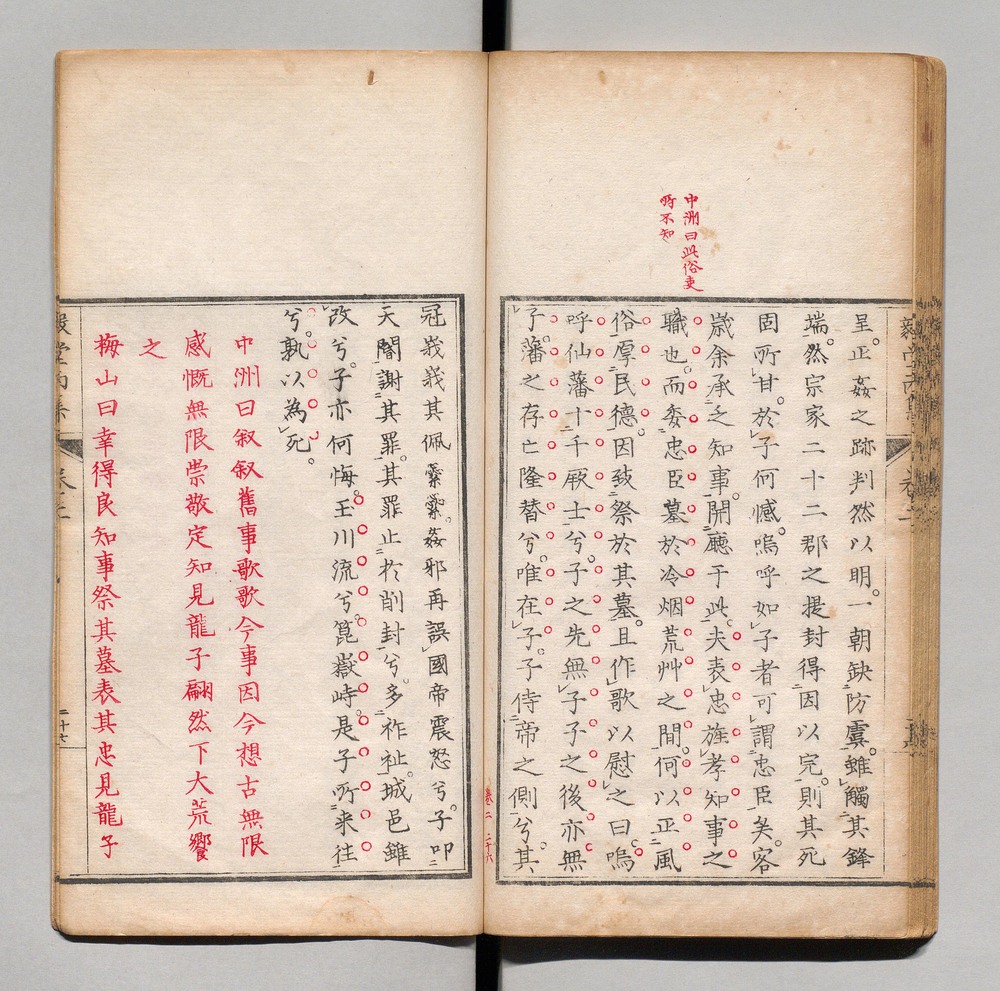 中洲曰此俗吏
所不知
呈。正姦之跡判然以明。一朝缺防虞。雖觸其鋒
端。然宗家二十二郡之提封得因以完。則其死
固所甘。於子何憾。嗚呼如子者可謂忠臣矣。客
歲余承乏知事。開廳于此。夫表忠旌孝知事之
職也。而委忠臣墓於冷烟荒艸之間。何以正風
俗。厚民德。因致祭於其墓。且作歌以慰之曰。嗚
呼仙藩十千厥士兮。子之先無子。子之後亦無
子。藩之存亡隆替兮。唯在子。子侍帝之側兮。其
卷二 二十六
冠峩峩其佩纍纍。姦邪再誤國帝震怒兮。子叩
天閽謝其罪。其罪止於削封兮。多祚祉。城邑雖
改兮。子亦何悔。玉川流兮。箆嶽峙。是子所来往
兮。孰以為死。
中洲曰叙叙舊事歌歌今事因今想古無限
感慨無限崇敬定知見龍子翩然下大荒饗
之
梅山曰幸得良知事祭其墓表其忠見龍子
二十七